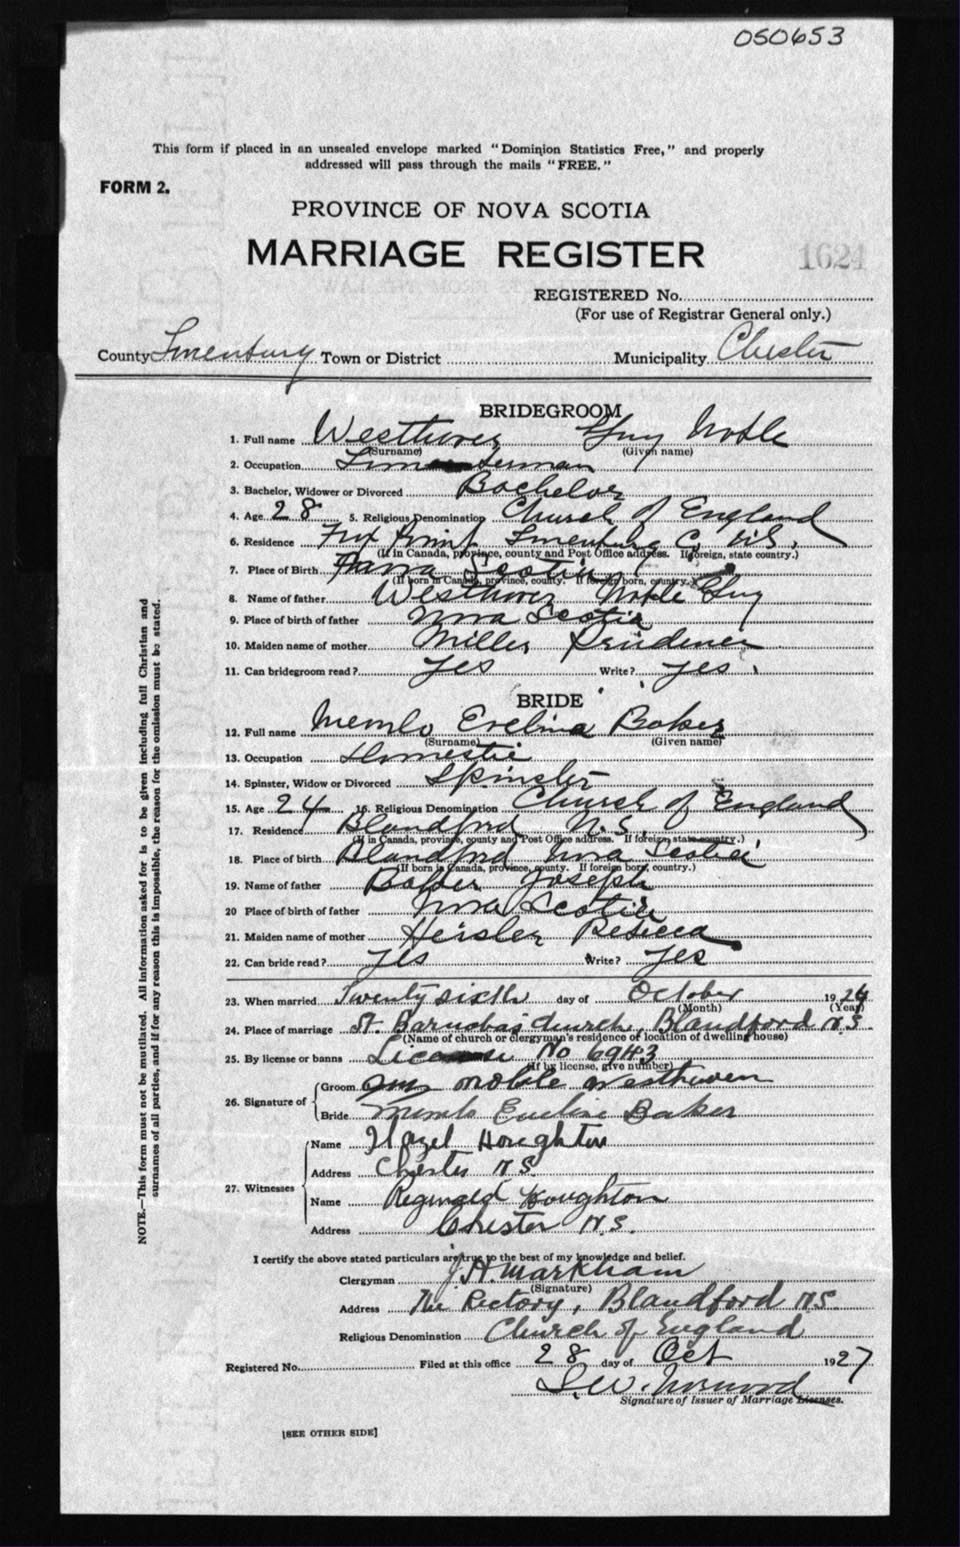 050653
This form if placed in an unsealed envelope marked "Dominion Statistics Free," and properly
addressed will pass through the mails "FREE."
FORM 2.
PROVINCE OF NOVA SCOTIA
MARRIAGE REGISTER
1624
REGISTERED No.
(For use of Registrar General only.)
County Lunenburg Town or District Municipality Chester
BRIDEGROOM
1. Full name Westhaver Guy Noble
(Surname) (Given name)
2. Occupation
3. Bachelor, Widower or Divorced Bachelor
4. Age 28 5. Religious Denomination Church of England
6. Residence Fox Point Lunenburg Co N.S.
(If in Canada, province, county and Post Office address. If foreign, state country.)
7. Place of Birth Nova Scotia
(If born in Canada, province, county. If foreign born, country.)
8. Name of father Westhaver Noble Guy
9. Place of birth of father Nova Scotia
10. Maiden name of mother Miller Prudence
11. Can bridegroom read? Yes Write? Yes.
BRIDE
12. Full name Evelina Baker
(Surname) (Given name)
13. Occupation Domestic
14. Spinster, Widow or Divorced Spinster
15. Age 24 16. Religious Denomination Church of England
17. Residence Blandford N.S.
(If in Canada, province, county and Post Office address. If foreign, state country.)
18. Place of birth Blandford Nova Scotia
(If born in Canada, province, county. If foreign born, country.)
19. Name of father Baker Joseph
20 Place of birth of father Nova Scotia
21. Maiden name of mother Heisler Rebecca
22. Can bride read? Yes Write? Yes
23. When married Twenty sixth day of October 19
(Month) (Year)
24. Place of marriage St. Barnabas Church, Blandford N.S.
(Name of church or clergyman's residence or location of dwelling house)
25. By license or banns License No 6943
(If by license, give number)
26. Signature of
Groom Guy Noble Westhaver
Bride Eveline Baker
27. Witnesses
Name Hazel Houghton
Address Chester N S
Name Reginald Houghton
Address Chester N.S.
I certify the above stated particulars are true to the best of my knowledge and belief.
Clergyman J.H. Markham
(Signature)
Address The Rectory, Blandford N.S.
Religious Denomination Church of England
Registered No. Filed at this office 28 day of Oct 1927
S.W. Norwood
Signature of Issuer of Marriage Licenses.
[SEE OTHER SIDE]
NOTE.—This form must not be mutilated. All information asked for is to be given including full Christian and
surnames of all parties, and if for any reason this is impossible, the reason for the omission must be stated.